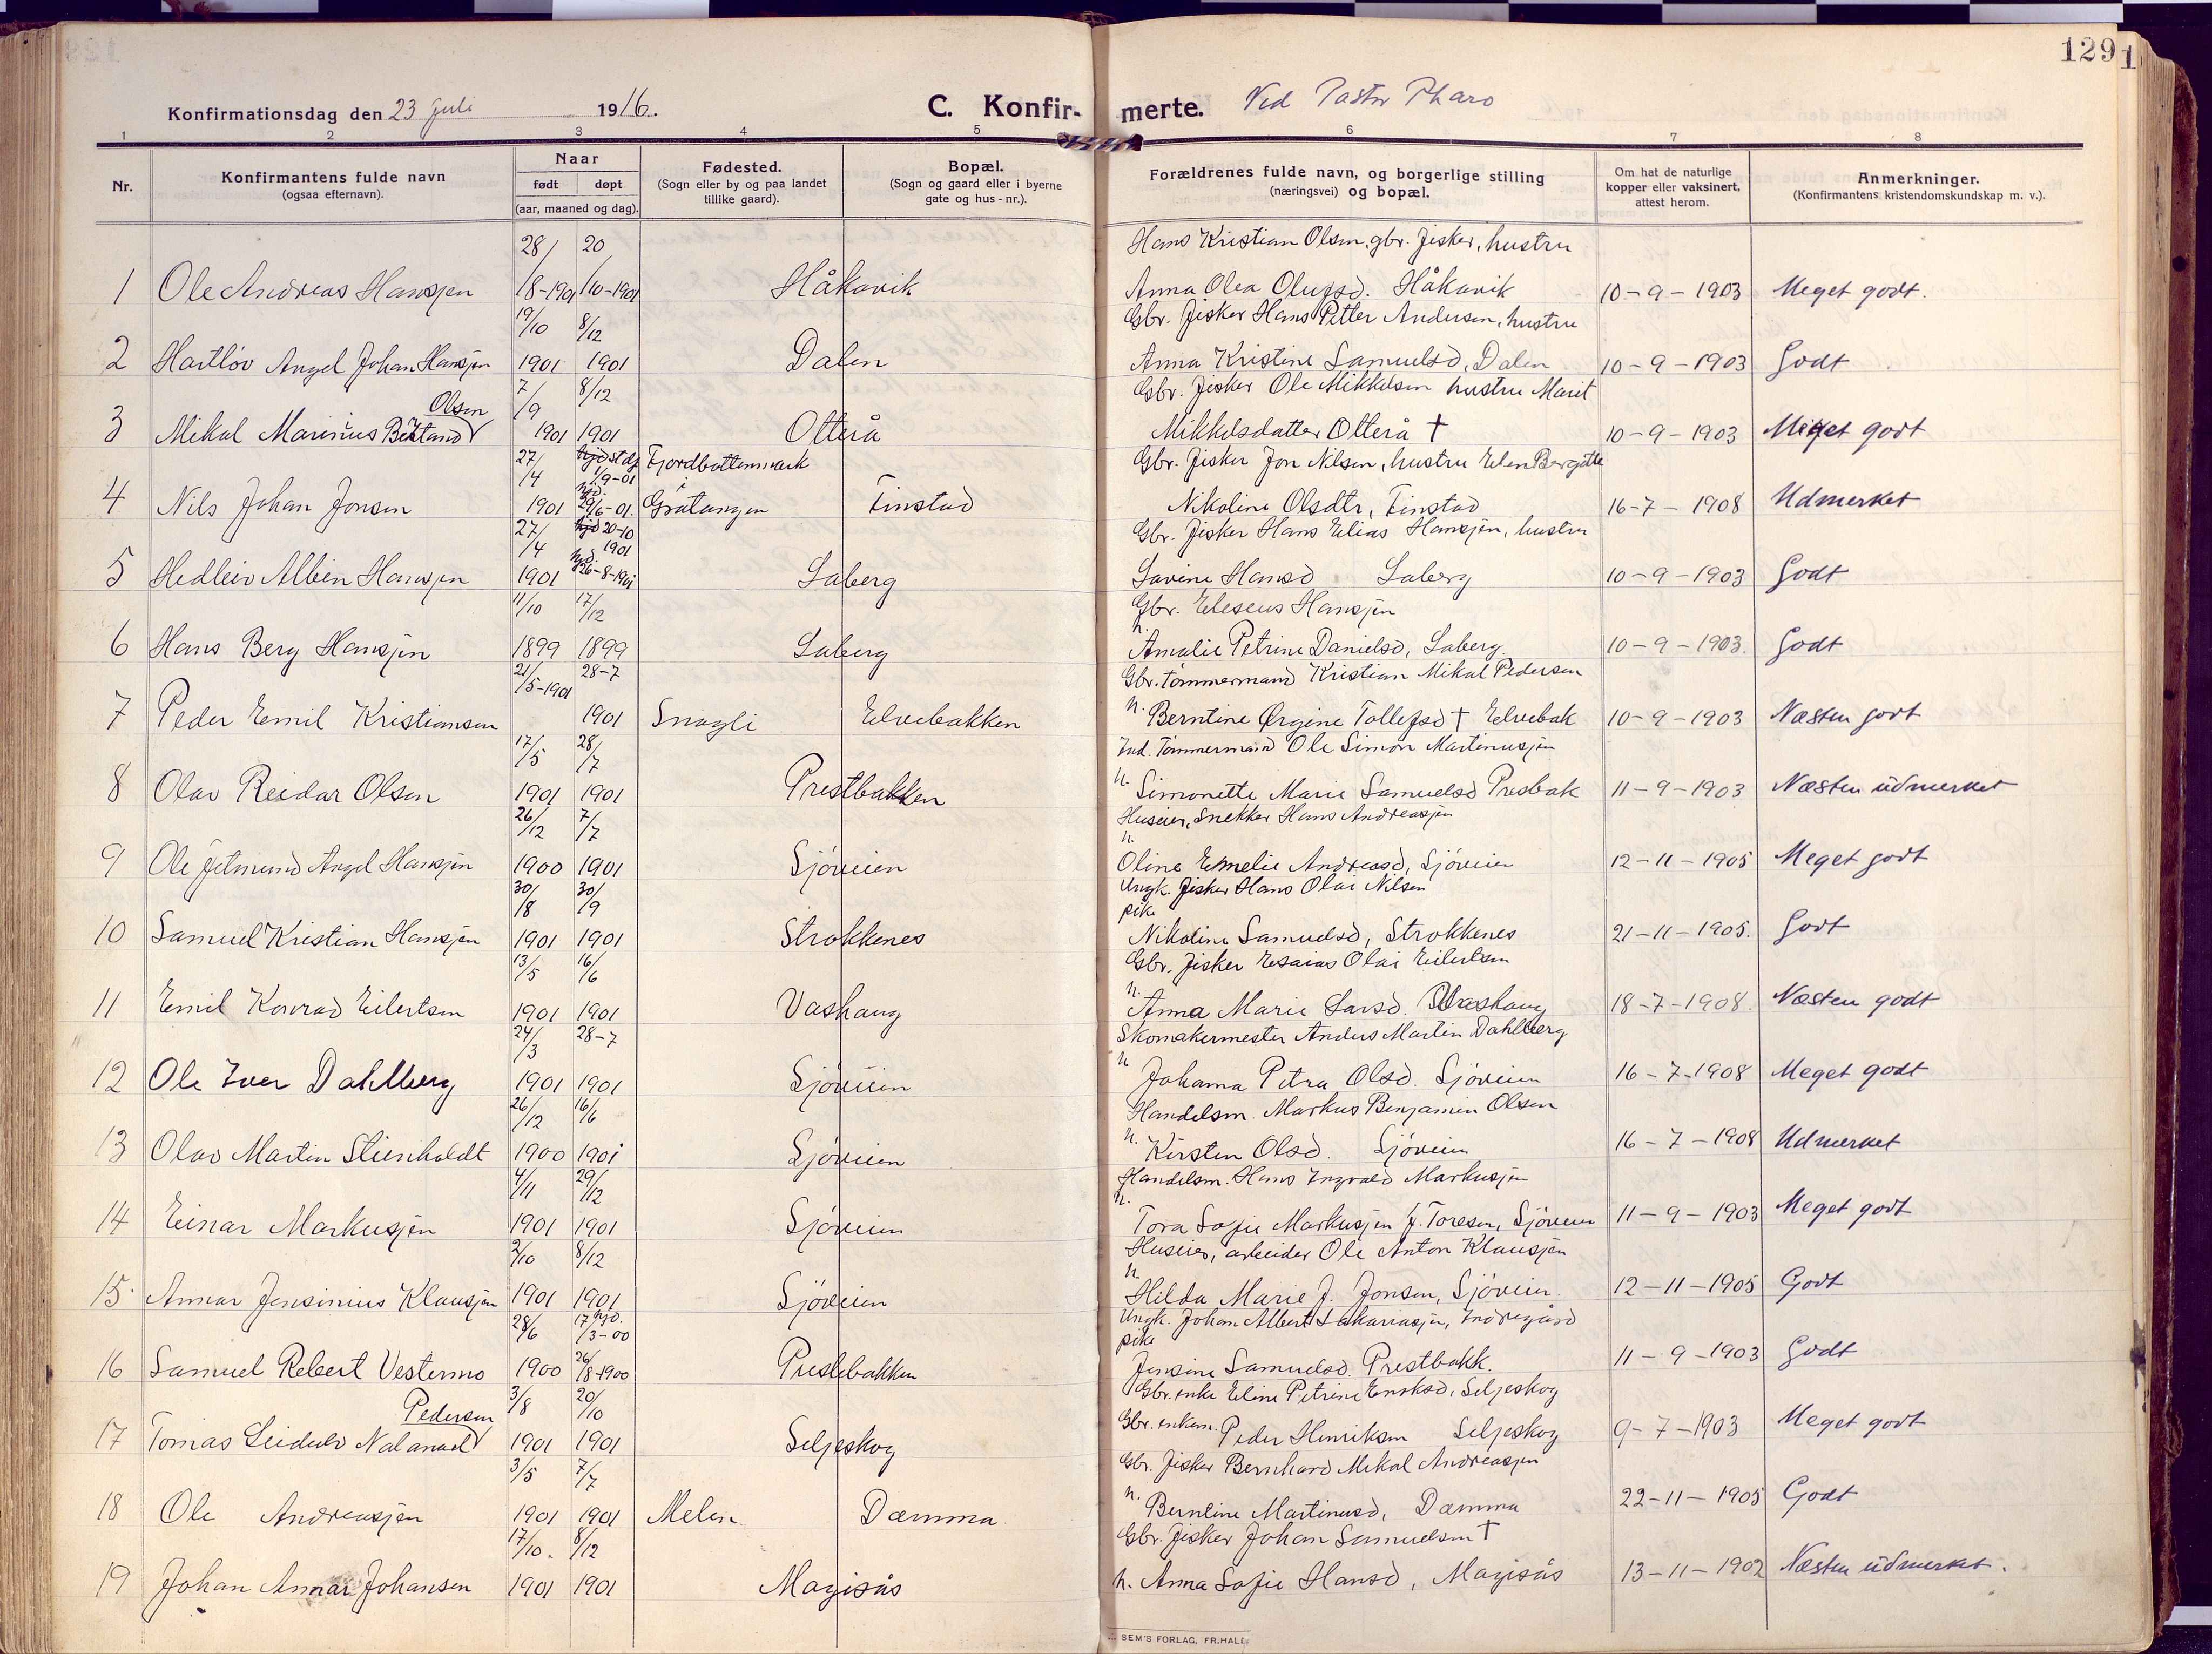 129
Konfirmationsdag den 23 Juli 1916. C. Konfir- merte. Ved Pastor Pharo
1 2 3 4 5 6 7 8
Nr. Konfirmantens fulde navn (ogsaa efternavn). Naar født døpt (aar, maaned og dag). Fødested. (Sogn eller by og paa landet tillike gaard). Bopæl. (Sogn og gaard eller i byerne gate og hus-nr.). Forældrenes fulde navn, og borgerlige stilling (næringsvei) og bopæl. Om hat de naturlige kopper eller vaksinert, attest herom. Anmerkninger. (Konfirmantens kristendomskundskap m. v.).
28/ 20 Hans Kristian Olsen, gbr. fisker, hustru
1 Ole Andreas Hansen /8-1901 /10-1901 Håkavik Anna Olea Olufsd. Håkavik 10-9-1903 Meget godt.
19/10 8/12 Gbr. fisker Hans Petter Andersen, hustru
2 Hartløv Angel Johan Hansen 1901 1901 Dalen Anna Kristine Samuelsd, Dalen 10-9-1903 Godt
Olsen 7/9 8/12 Gbr. fisker Ole Mikkelsen hustru Marit
3 Mikal Marinius 1901 1901 Otterå Mikkelsdatter Otterå † 10-9-1903 Meget godt
27/4 1/9-01 Fjordbottenmark i Gbr. fisker Jon Nilsen, hustru Elen Bergitte
4 Nils Johan Jonsen 1901 hjd. 29/6-01. Gratangen Tinstad Nikoline Olsdtr, Tinstad 16-7-1908 Udmerket
27/4 20-10 1901 Gbr. fisker Hans Elias Hansen, hustru
5 Hedleiv Albin Hansen 1901 hjd. 26-8-1901 Laberg Lavine Hansd Laberg 10-9-1903 Godt
11/10 17/12 Gbr. Eleseus Hansen
6 Hans Berg Hansen 1899 1899 Laberg h. Amalie Petrine Danielsd, Laberg. 10-9-1903. Godt
21/5-1901 28-7 Gbr. tømmermand Kristian Mikal Pedersen
7 Peder Emil Kristiansen 1901 Snagli Elvebakken h. Berntine Ørgine Tollefsd † Elvebak 10-9-1903 Næsten godt
17/5 28/7 Ind. Tømmermand Ole Simon Martinusen
8 Olav Reidar Olsen 1901 1901 Prestbakken h. Simonette Marie Samuelsd Presbak 11-9-1903 Næsten udmerket
26/12 7/7 Huseier, Snekker Hans Andreasen
9 Ole Jetmund Angel Hansen 1900 1901 Sjöveien h. Oline Emelie Andreasd, Sjöveien 12-11-1905 Meget godt
30/8 30/9 Ungk. fisker Hans Olai Nilsen
10 Samuel Kristian Hansen 1901 1901 Strokkenes pike Nikoline Samuelsd, Strokkenes 21-11-1905. Godt
13/5 16/6 Gbr. fisker Esaias Olai Eilertsen
11 Emil Konrad Eilertsen 1901 1901 Vashaug h. Anna Marie Larsd. Vashaug 18-7-1908. Næsten godt
24/3 28-7 Skomakermester Anders Martin Dahlberg
12 Ole Iver Dahlberg 1901 1901 Sjöveien h Johanna Petra Olsd. Sjöveien 16-7-1908 Meget godt
26/12 16/6 Handelsm. Markus Benjamin Olsen
13 Olav Martin Stienholdt 1900 1901 Sjöveien h. Kirsten Olsd. Sjöveien 16-7-1908 Udmerket
4/11 29/12 Handelsm. Hans Ingvald Markusen
14 Einar Markusen 1901 1901 Sjöveien h. Tora Sofie Markusen f. Toresen, Sjöveien 11-9-1903 Meget godt
2/10 8/12 Huseier, arbeider Ole Anton Klausen
15. Annar Jensinius Klausen 1901 1901 Sjöveien h Hilda Marie J. Jonsen, Sjöveien. 12-11-1905 Godt
28/6 17/3-00 hjd. Ungk. Johan Albert Sakariasen, Indregård
16 Samuel Robert Vestermo 1900 26/8-1900 Prestebakken pike Jensine Samuelsd. Prestbakk. 11-9-1903 Godt
Pedersen 3/8 20/10 Gbr. enke Eline Petrine Enoksd, Seljeskog
17 Tomas Leidulv 1901 1901 Seljeskog Gbr. enkem. Peder Henriksen Seljeskog 9-7-1903 Meget godt
3/5 7/7 Gbr. fisker Bernhard Mikal Andreasen
18 Ole Andreasen 1901 1901 Melen Dæmma h. Berntine Martinusd, Dæmma 22-11-1905 Godt
17/10. 8/12 Gbr. fisker Johan Samuelsen †
19 Johan Annar Johansen 1901 1901 Magisås h. Anna Sofie Hansd, Magisås 13-11-1902 Næsten udmerket.
SEM'S FORLAG, FR.HALD